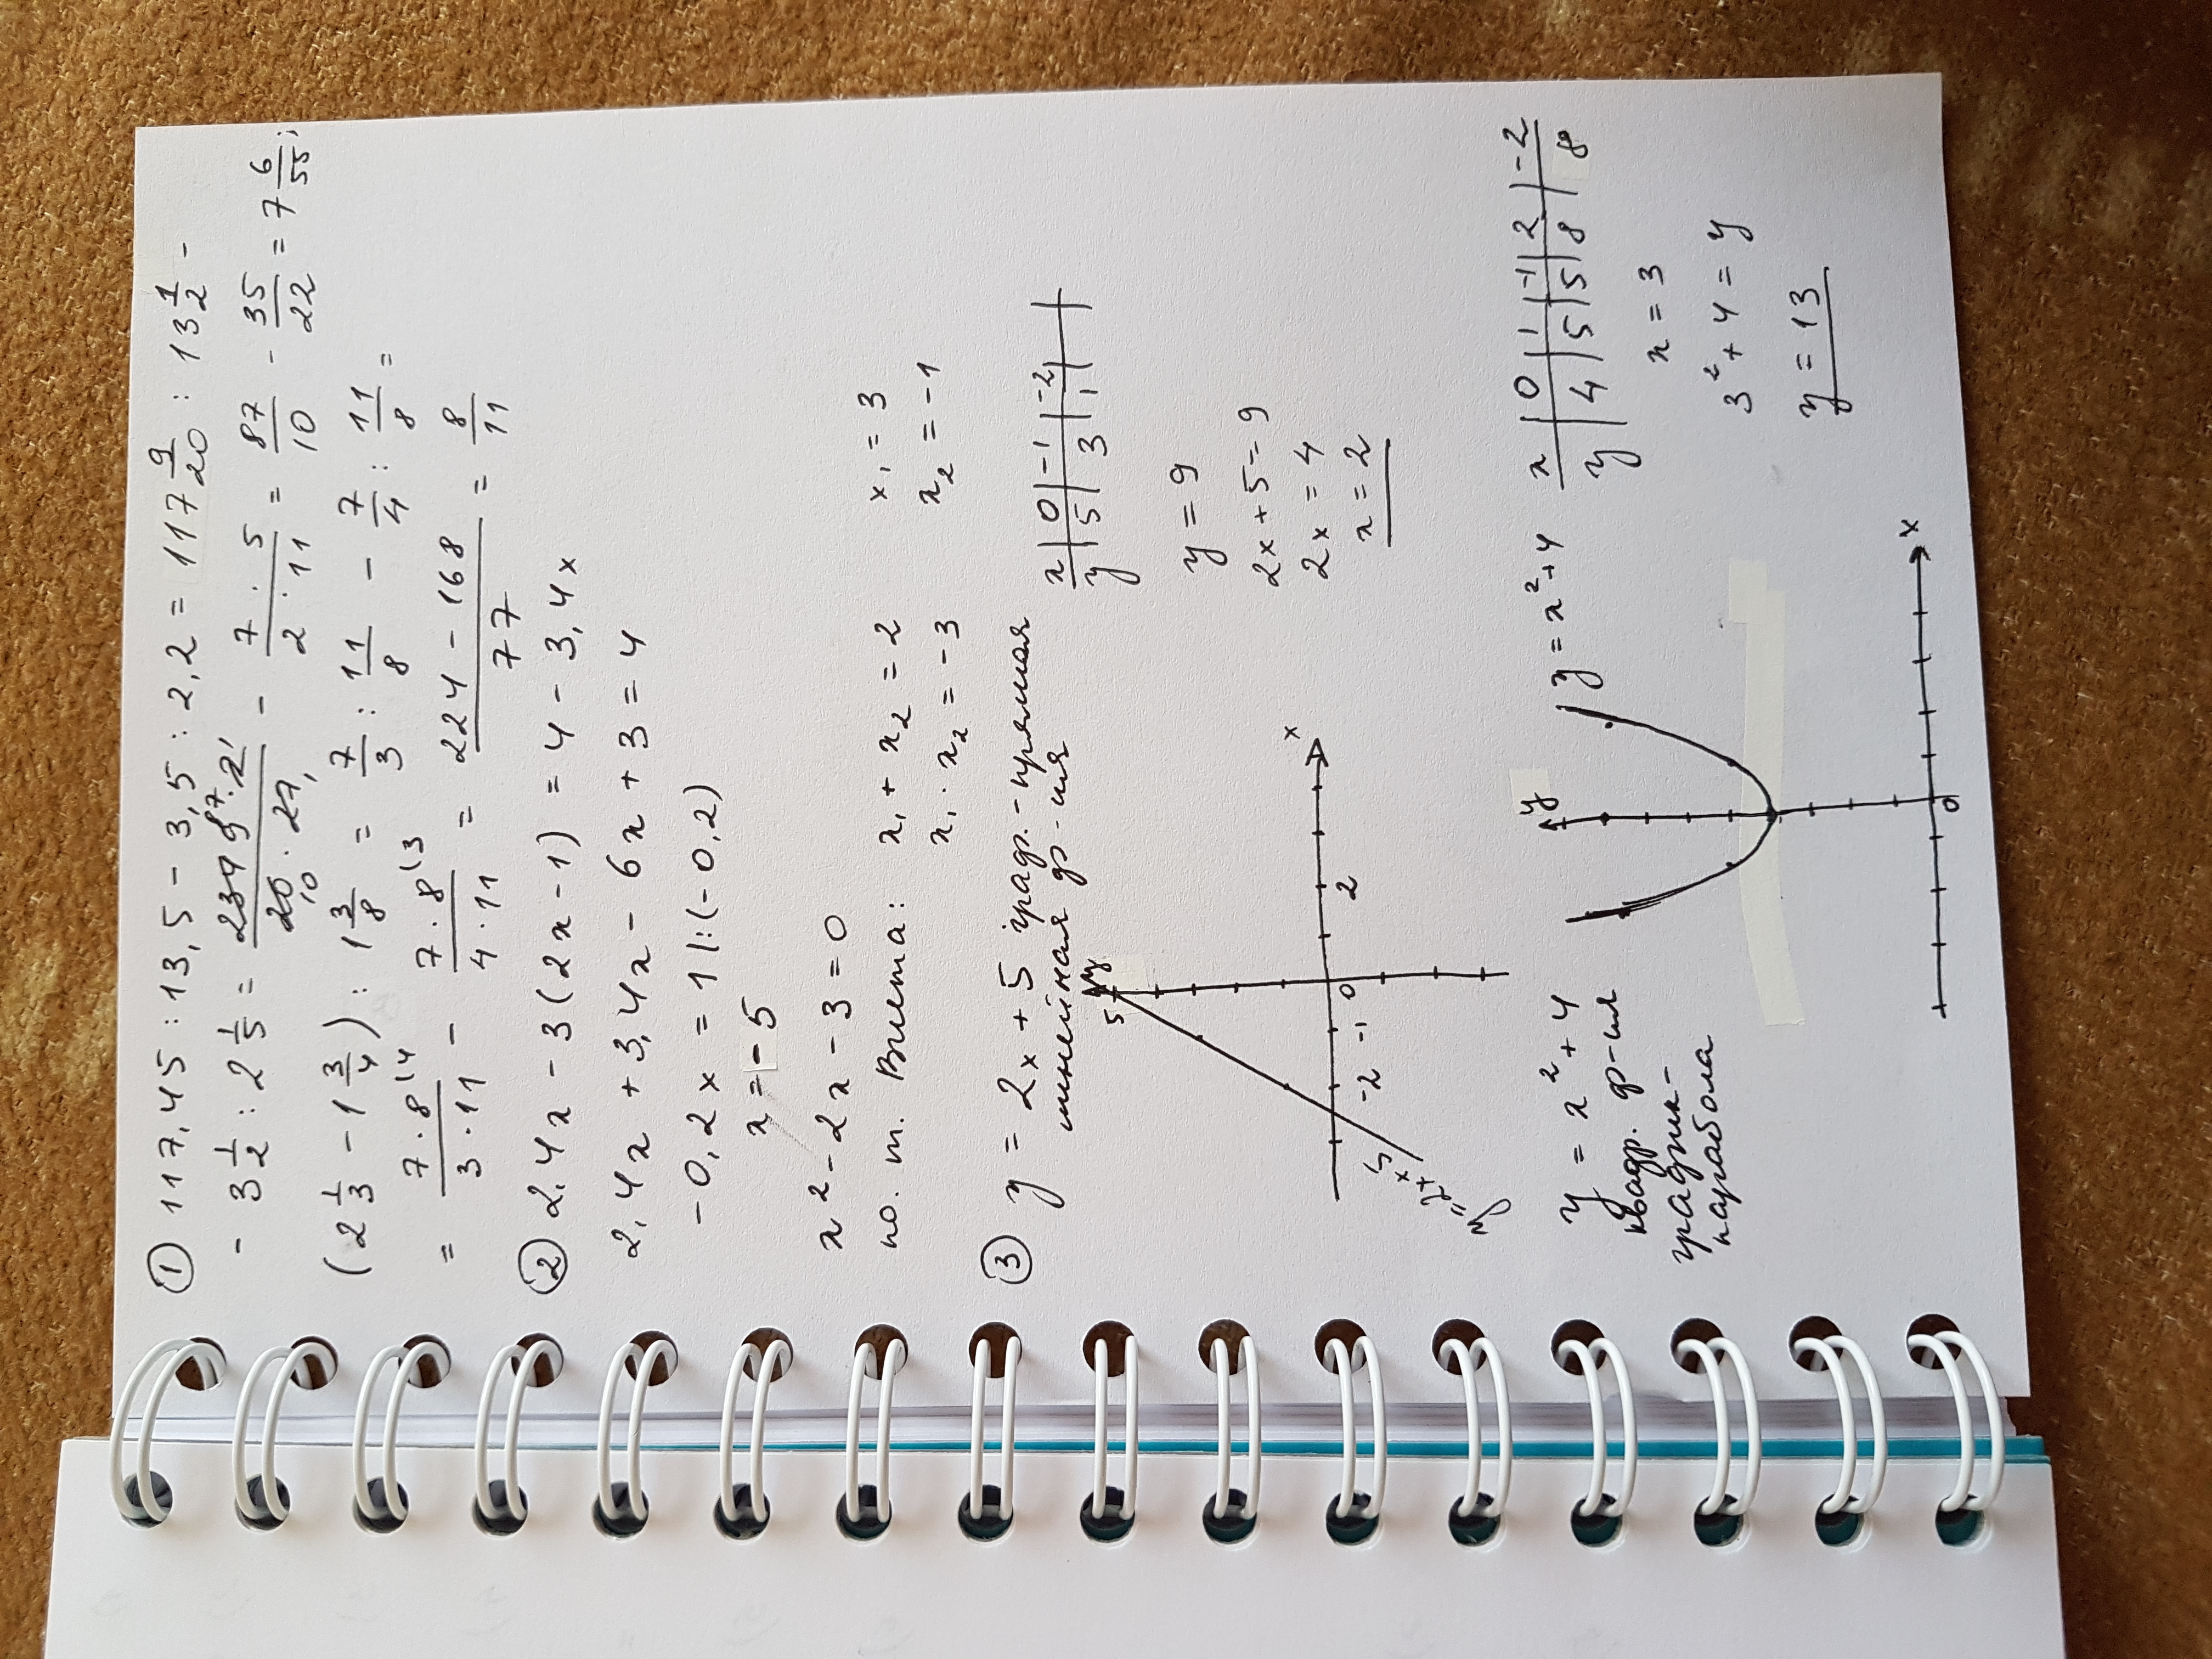 ① 117,45 : 13,5 - 3,5 : 2,2 = 117 9/20 : 13 1/2 -
- 3 1/2 : 2 1/5 = 2349 87 · 2 1 / 20 10 · 27 1 - 7 · 5 / 2 · 11 = 87/10 - 35/22 = 7 6/55;
(2 1/3 - 1 3/4) : 1 3/8 = 7/3 : 11/8 - 7/4 : 11/8 =
= 7 · 8 (4 / 3 · 11 - 7 · 8 (3 / 4 · 11 = 224 - 168 / 77 = 8/11
② 2,4x - 3(2x - 1) = 4 - 3,4x
2,4x + 3,4x - 6x + 3 = 4
-0,2x = 1 |:(-0,2)
x = -5
x² - 2x - 3 = 0
по т. Виета: x₁ + x₂ = 2 x₁ = 3
x₁ · x₂ = -3 x₂ = -1
③ y = 2x + 5 граф. - прямая
линейная ф-ия
x | 0 | -1 | -2 |
y | 5 | 3 | 1 |
y = 9
2x + 5 = 9
2x = 4
x = 2
y
5
x
-2 -1 0 2
y = 2x + 5
y = x² + 4
квадр. ф-ия
график -
парабола
y
y = x² + 4
x
0
x | 0 | 1 | -1 | 2 | -2
y | 4 | 5 | 5 | 8 | 8
x = 3
3² + 4 = y
y = 13